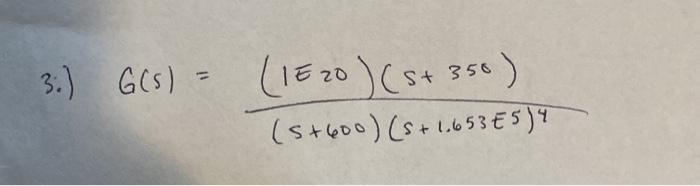 3.) G(s) = (1E20)(s+350)
(s+600)(s+1.653E5)^4